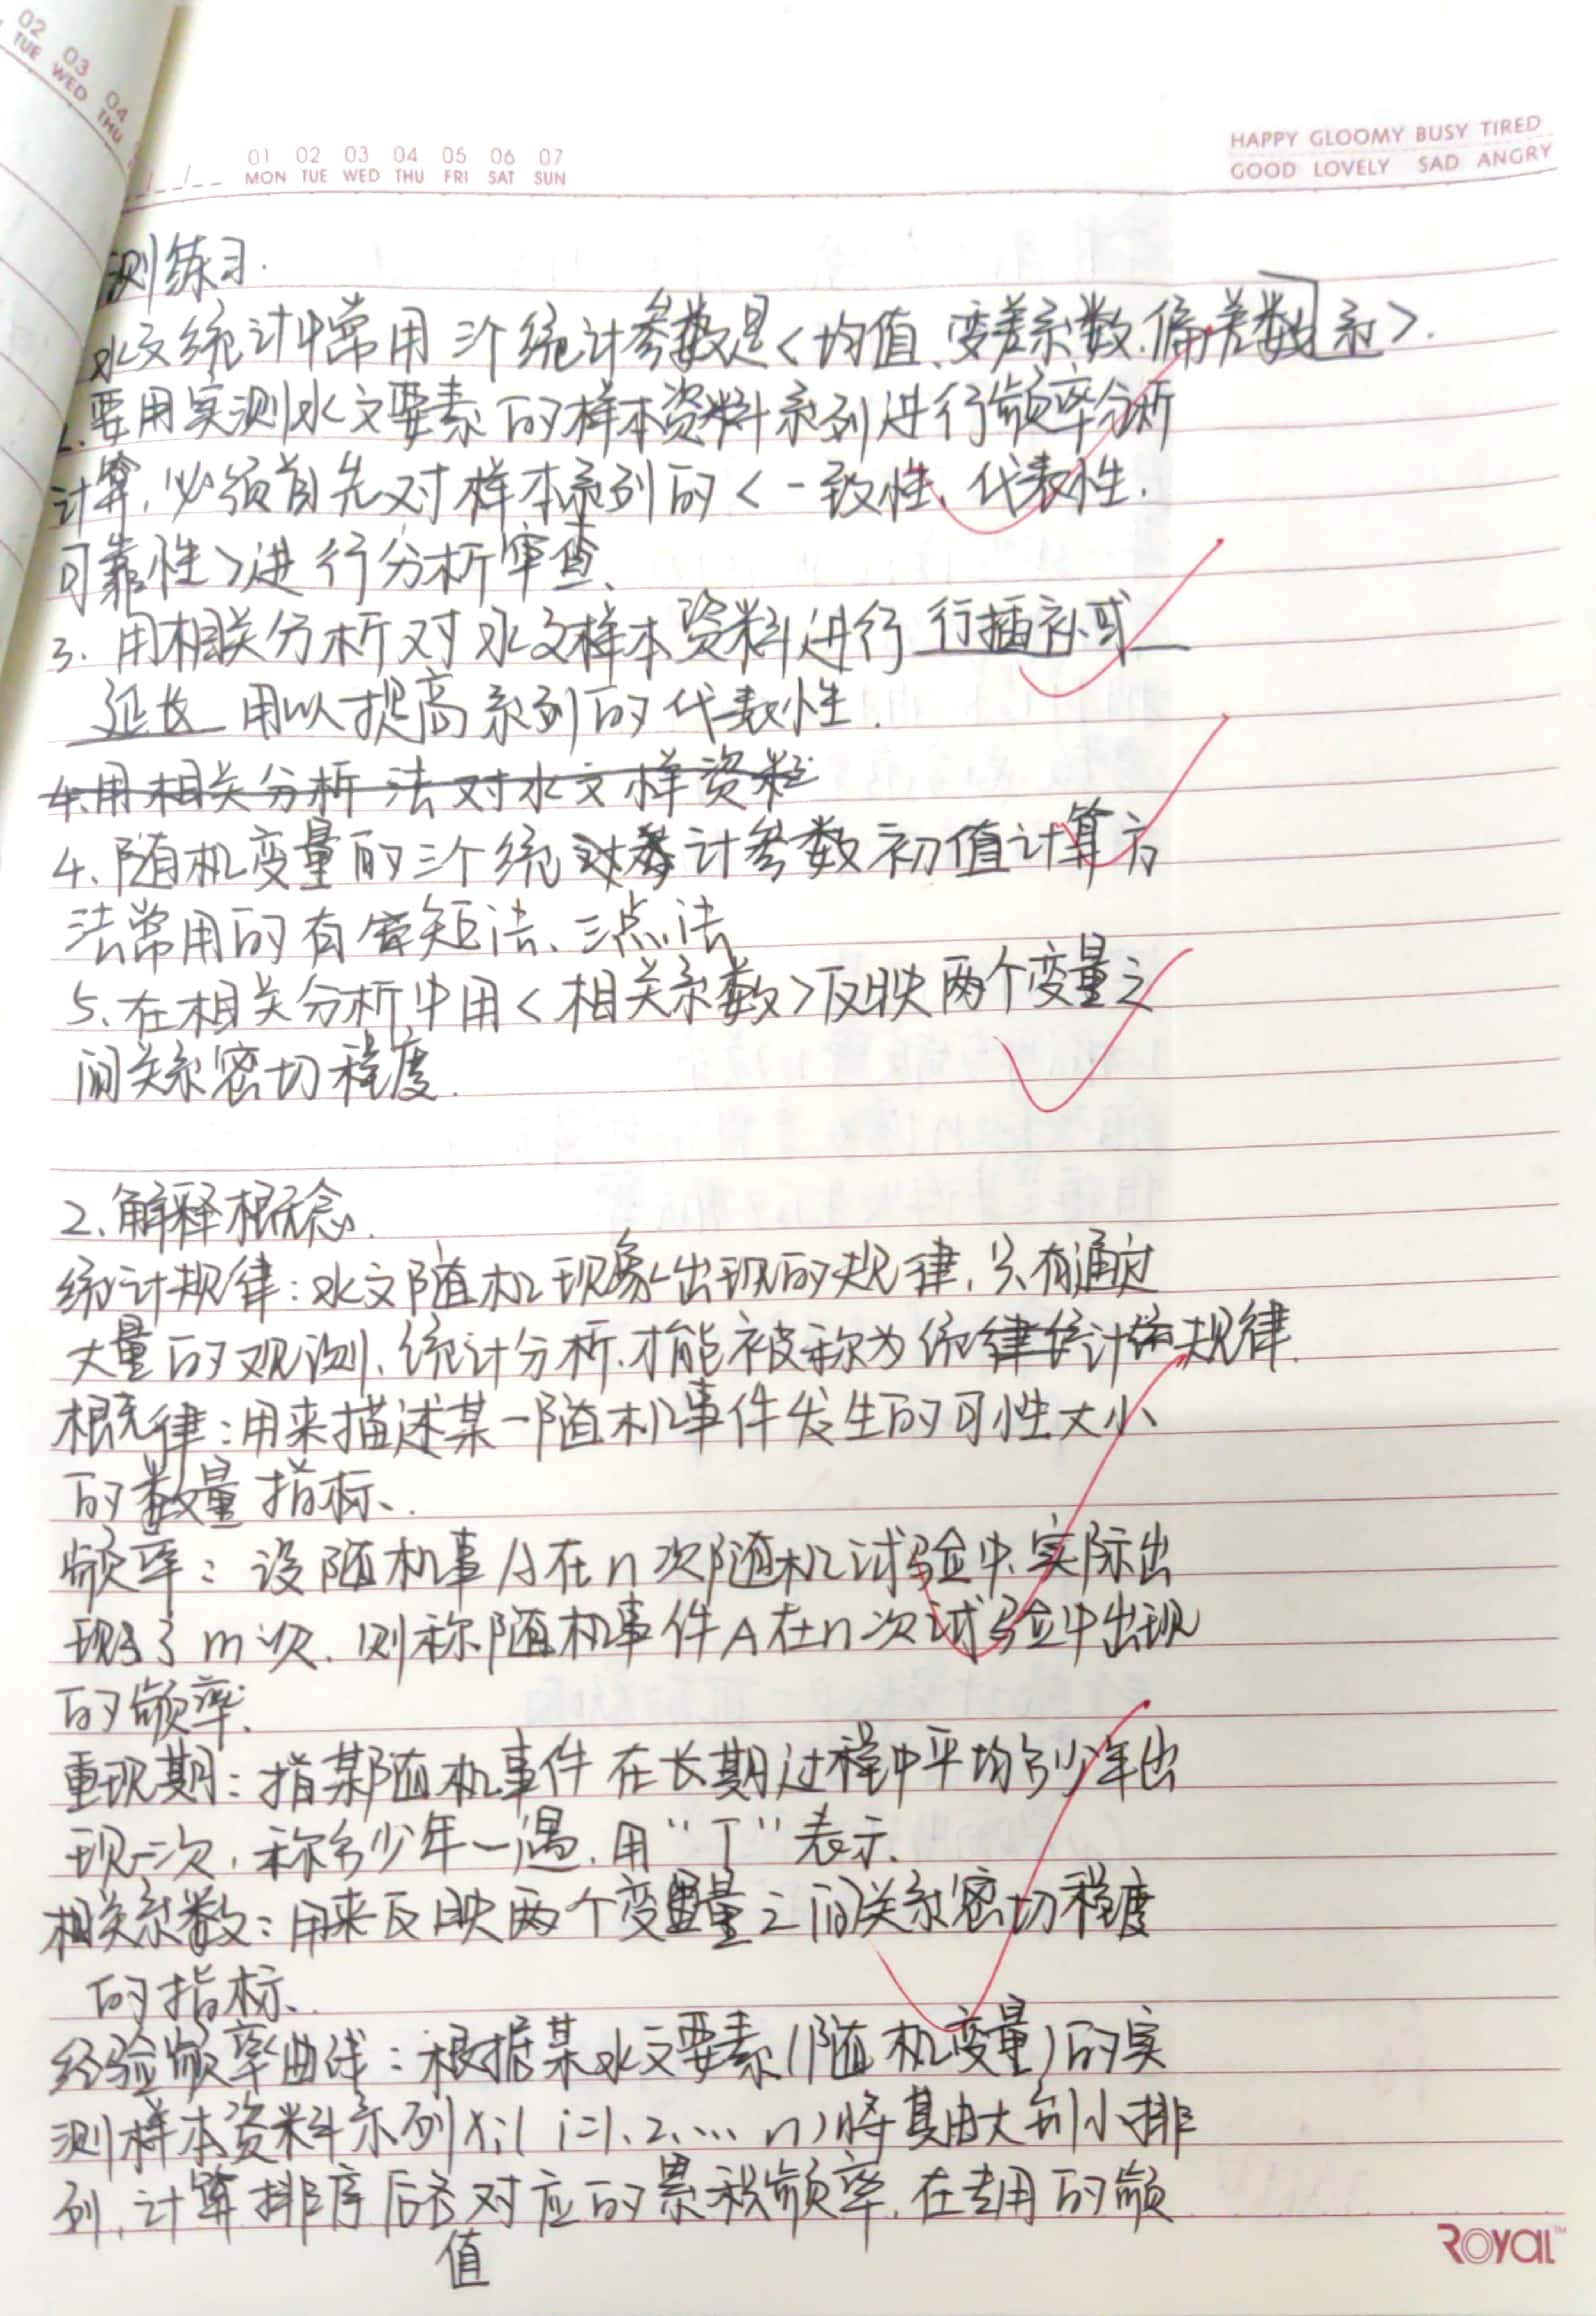 02 03 04
TUE WED THU
01 02 03 04 05 06 07
MON TUE WED THU FRI SAT SUN
HAPPY GLOOMY BUSY TIRED
GOOD LOVELY SAD ANGRY
测练习.
水文统计中常用三个统计参数是<均值、变差系数、偏差数系>.
2.要用实测水文要素的样本资料系列进行频率分析
计算,必须首先对样本系列的<一致性、代表性.
可靠性>进行分析审查、
3.用相关分析对水文样本资料进行行插补或
延长用以提高系列的代表性.
4.用相关分析法对水文样资料
4、随机变量的三个统计参数初值计算方
法常用的有矩法、三点法
5、在相关分析中用<相关系数>反映两个变量之
间关系密切程度.
2、解释概念.
统计规律:水文随机现象出现的规律,只有通过
大量的观测、统计分析.才能被称为统计规律.
概率:用来描述某一随机事件发生的可性大小
的数量指标、.
频率:设随机事A在n次随机试验中,实际出
现了m次.则称随机事件A在n次试验中出现
的频率.
重现期:指某随机事件在长期过程中平均多少年出
现一次,称多少年一遇.用“T”表示.
相关系数:用来反映两个变量之间关系密切程度
的指标、.
经验频率曲线:根据某水文要素(随机变量)的实
测样本资料系列xi(i=1、2、… n)将其由大到小排
列,计算排序后各对应的累积频率,在专用的频
值
ROYAL™